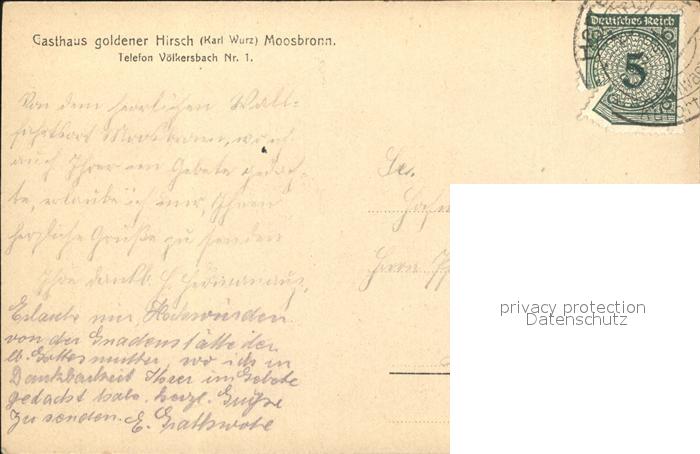 Gasthaus goldener Hirsch (Karl Wurz) Moosbronn.
Telefon Völkersbach Nr. 1.
Deutsches Reich
5
Von dem herrlichen Wall-
fahrtsort Moosbronn, wo ich
auch Ihrer im Gebete gedach-
te, erlaube ich mir, Ihnen
herzliche Grüße zu senden
Ihre dankb.
Sr.
Herrn
Erlaube mir, Hochwürden
von der Gnadenstätte der
lb. Gottesmutter, wo ich in
Dankbarkeit Ihrer im Gebete
gedacht habe. herzl. Grüße
zu senden. E.
privacy protection
Datenschutz